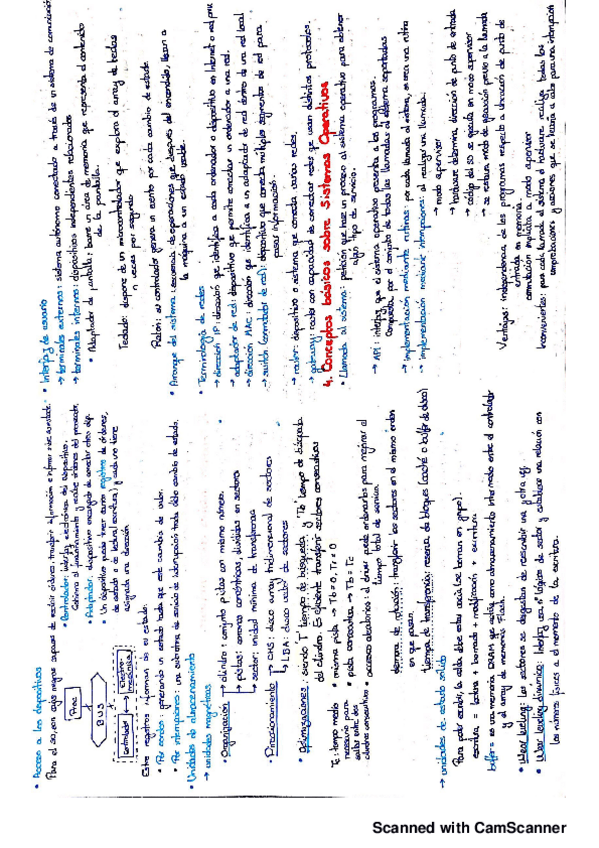 • Acceso a los dispositivos
Para el SO, son cajas negras capaces de recibir órdenes, transferir información e informar de su estado.
Proc
BUS
Controlador
Electro-mecánica
• Controlador: interfaz electrónica del dispositivo.
Gestiona el funcionamiento y recibe órdenes del procesador.
• Adaptador: dispositivo encargado de conectar otros disp.
• Un dispositivo puede tener varios registros de órdenes,
de estado o de lectura/escritura, y cada uno tiene
asignada una dirección.
Estos registros informan de su estado:
• Por sondeo: operando un estado hasta que este cambia de valor.
• Por interrupciones: una subrutina de servicio de interrupción trata dicho cambio de estado.
• Unidades de almacenamiento
→ unidades magnéticas
• Organización → cilindro: conjunto pistas con mismo número.
→ pistas: coronas concéntricas, divididas en sectores
→ sector: unidad mínima de transferencia
• Direccionamiento → CHS: disco array tridimensional de sectores
→ LBA: disco vector de sectores
• Optimizaciones: siendo T tiempo de búsqueda y "Tb" tiempo de búsqueda
del cilindro. Es eficiente transferir sectores consecutivos
Tc: tiempo medio
necesario para
saltar entre dos
cilindros consecutivos
• misma pista → Tb = 0, Tr = 0
• pista consecutiva → Tb = Tc
• accesos aleatorios: el driver puede ordenarlos para mejorar el
tiempo total de servicio.
demora de rotación: transferir los sectores en el mismo orden
en que pasan.
tiempo de transferencia: reserva de bloques (caché o buffer de disco)
→ unidades de estado sólido
Para poder escribir, la celda debe estar vacía (se borran en grupo).
escritura = lectura + borrado + modificación + escritura
buffer: es una memoria DRAM que actúa como almacenamiento intermedio entre el controlador
y el array de memoria Flash.
• Wear leveling: los sectores se desgastan de reescribir una y otra vez.
• Wear leveling dinámico: Identifica con nº lógicos de sector y establece una relación con
los números físicos a el momento de la escritura.
• Interfaz de usuario
→ terminales externos: sistema autónomo conectado a través de un sistema de comunicación
→ terminales internos: dispositivos independientes relacionados
• Adaptador de pantalla: barre un área de memoria que representa el contenido
de la pantalla.
Teclado: dispone de un microcontrolador que explora el array de teclas
n veces por segundo
Ratón: su controlador genera un evento por cada cambio de estado.
• Arranque del sistema: secuencia de operaciones que después del encendido, llevan a
la máquina a un estado estable.
• Terminología de redes
→ dirección IP: dirección que identifica a cada ordenador o dispositivo en Internet o red priv.
→ adaptador de red: dispositivo que permite conectar un ordenador a una red.
→ dirección MAC: dirección que identifica a un adaptador de red dentro de una red local
→ switch (conmutador de red): dispositivo que conecta múltiples segmentos de red para
pasar información.
→ router: dispositivo o sistema que conecta varias redes.
→ gateway: router con capacidad de conectar redes que usan distintos protocolos.
4. Conceptos básicos sobre Sistemas Operativos
• Llamada al sistema: petición que hace un proceso al sistema operativo para obtener
algún tipo de servicio.
→ API: interfaz que el sistema operativo presenta a los programas.
Compuesta por el conjunto de todas las llamadas al sistema soportadas
→ implementación mediante rutinas: por cada llamada al sistema, se crea una rutina
→ Implementación mediante interrupciones: al realizar una llamada:
→ modo supervisor
→ hardware determina dirección de punto de entrada
→ código del SO se ejecuta en modo supervisor
→ se restaura modo de ejecución previo a la llamada
Ventajas: independencia de los programas respecto a ubicación de punto de
entrada en memoria.
conmutación implícita a modo supervisor
Inconvenientes: para cada llamada al sistema el hardware realiza todas las
comprobaciones y acciones que se llevarían a cabo para una interrupción
Scanned with CamScanner